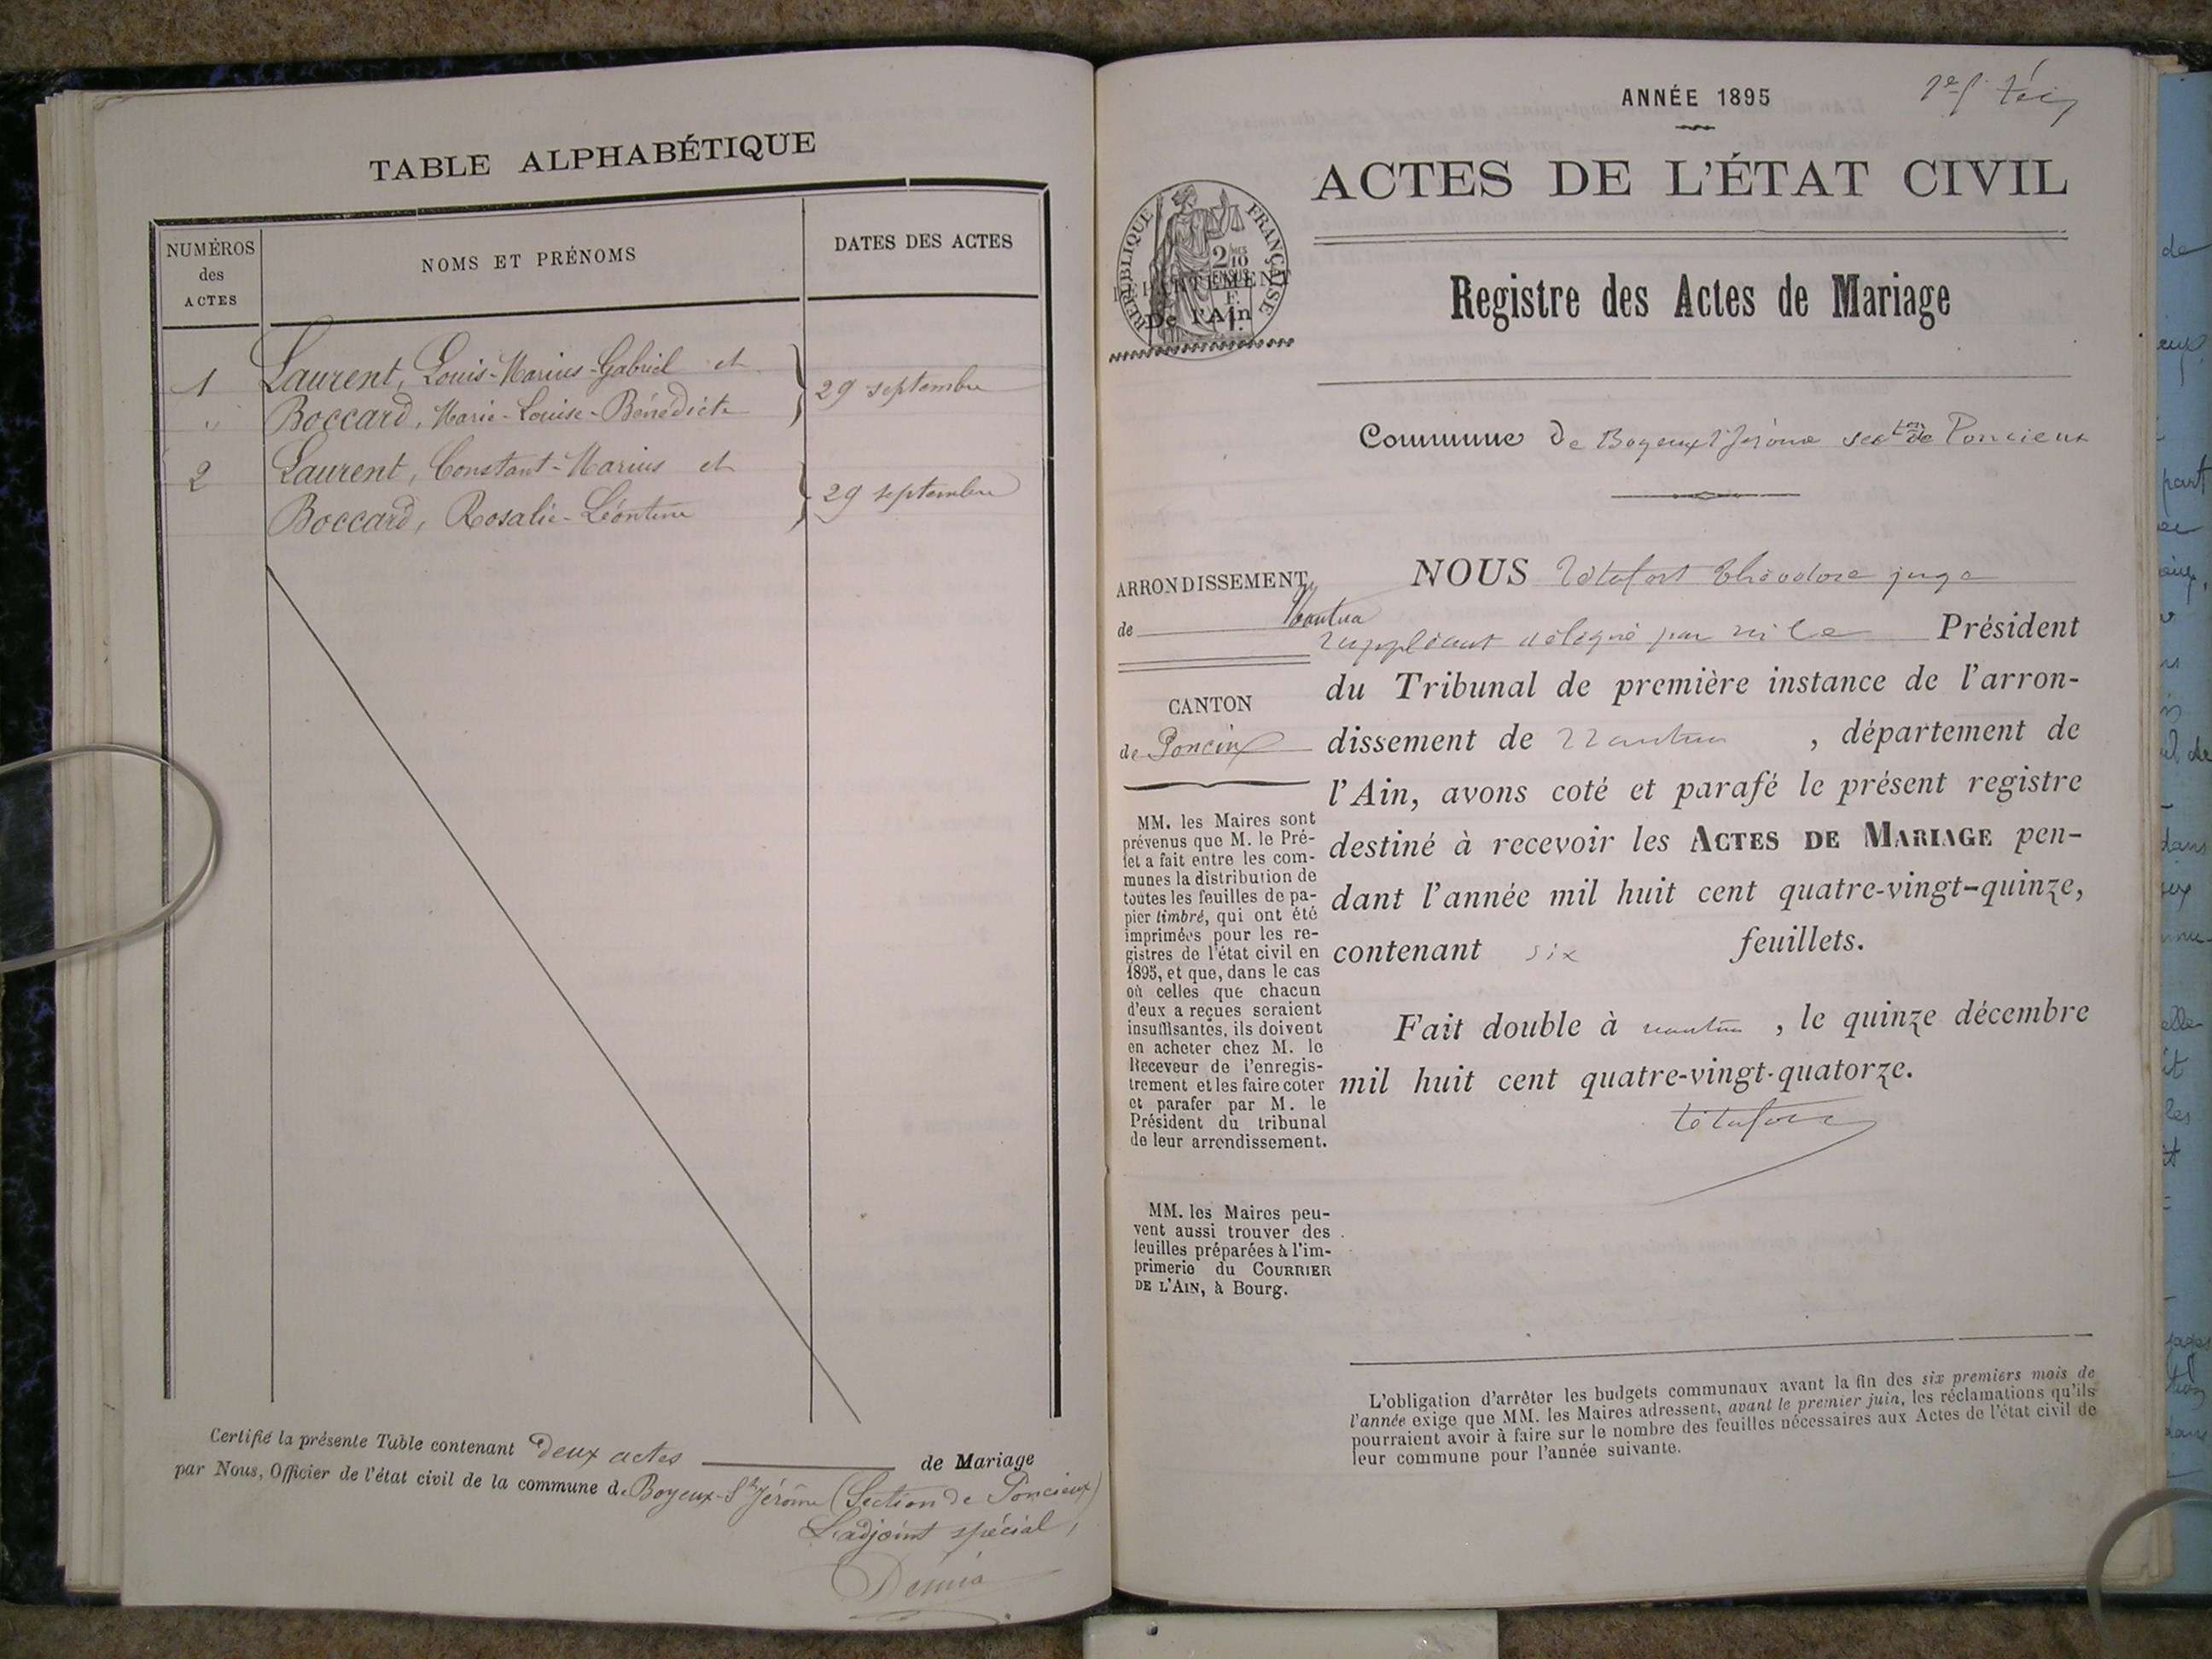 TABLE ALPHABÉTIQUE
NUMÉROS
des
ACTES
NOMS ET PRÉNOMS
DATES DES ACTES
1
Laurent, Louis-Marius-Gabriel et
Boccard, Marie-Louise-Bénédicte
29 septembre
2
Laurent, Constant-Marius et
Boccard, Rosalie-Léontine
29 septembre
Certifié la présente Table contenant deux actes de Mariage
par Nous, Officier de l'état civil de la commune de Boyeux-St Jérôme (Section de Poncieux)
L'adjoint spécial,
ANNÉE 1895
ACTES DE L'ÉTAT CIVIL
RÉPUBLIQUE FRANÇAISE
DÉPARTEMENT
De l'Ain
Registre des Actes de Mariage
Commune de Boyeux St Jérôme secton de Poncieux
ARRONDISSEMENT
de Nantua
CANTON
de Poncin
MM. les Maires sont
prévenus que M. le Pré-
fet a fait entre les com-
munes la distribution de
toutes les feuilles de pa-
pier timbré, qui ont été
imprimées pour les re-
gistres de l'état civil en
1895, et que, dans le cas
où celles que chacun
d'eux a reçues seraient
insuffisantes, ils doivent
en acheter chez M. le
Receveur de l'enregis-
trement et les faire coter
et parafer par M. le
Président du tribunal
de leur arrondissement.
MM. les Maires peu-
vent aussi trouver des
feuilles préparées à l'im-
primerie du COURRIER
DE L'AIN, à Bourg.
NOUS Tétafort Théodore juge
suppléant délégué par Mr le Président
du Tribunal de première instance de l'arron-
dissement de Nantua, département de
l'Ain, avons coté et parafé le présent registre
destiné à recevoir les ACTES DE MARIAGE pen-
dant l'année mil huit cent quatre-vingt-quinze,
contenant six feuillets.
Fait double à nantua, le quinze décembre
mil huit cent quatre-vingt-quatorze.
Tétafort
L'obligation d'arrêter les budgets communaux avant la fin des six premiers mois de
l'année exige que MM. les Maires adressent, avant le premier juin, les réclamations qu'ils
pourraient avoir à faire sur le nombre des feuilles nécessaires aux Actes de l'état civil de
leur commune pour l'année suivante.